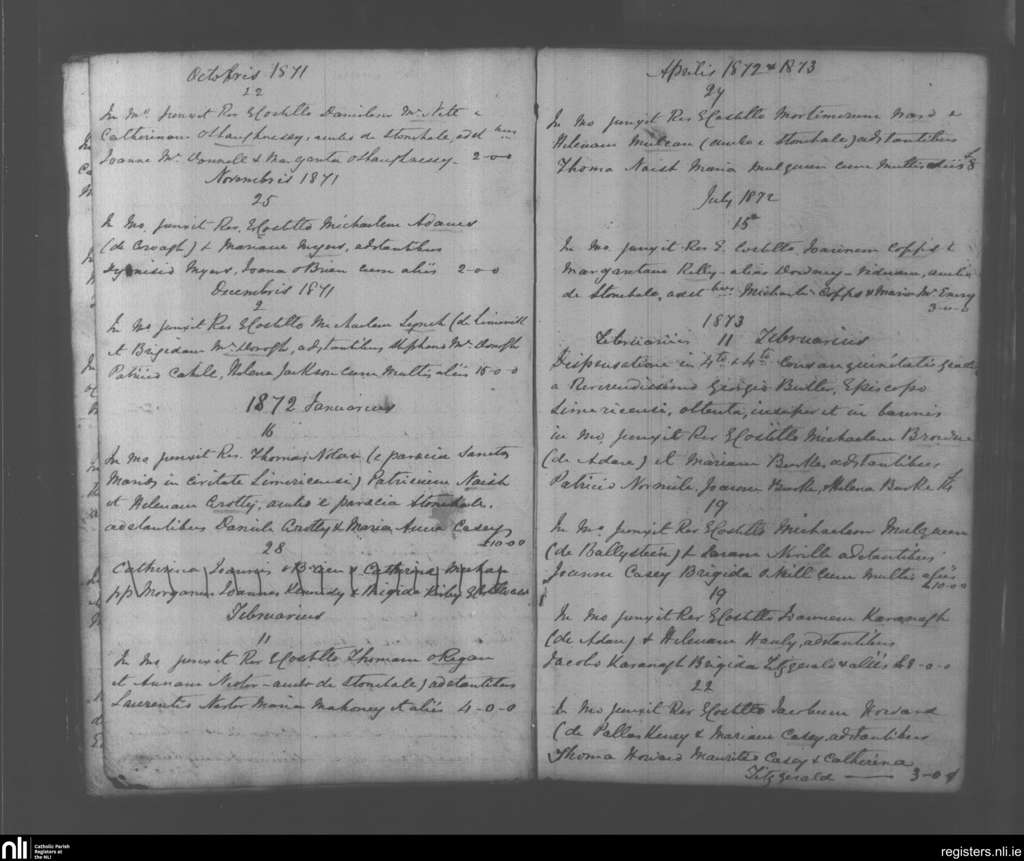 Octobris 1871
22
In Mo. junxit Rev E Costello Danielem Mc Nete &
Catherinam OShaughnessy, ambo de Stonehale, adst bus
Joanne Mc Donnell & Margarita oShaughnessy - 2-0-0
Novembris 1871
25
In Mo. junxit Rev. E Costello Michaelem Adams
(de Croagh) & Mariam Myers, adstantibus
Dyonisio Myers, Joana oBrien cum aliis 2-0-0
Decembris 1871
2
In Mo junxit Rev E Costello Michaelem Lynch (de
et Brigidam Mc Donogh, adstantibus Stephano Mc Donogh
Patricio Cahile, Helena Jackson cum multis aliis 15-0-0
1872 Januarius
16
In Mo junxit Rev. Thomas Nolan (e paracia Sanctae
Mariae in civitate Limericensi) Patricium Naish
et Helenam Crotty, ambo e paracia Stonehale,
adstantibus Daniele Crotty & Maria Anna Casey
£10-0-0
28
Catherina Joannis oBrien & Catherine Meehan
pp Morganus Joannes Kennedy & Brigida E Costello
Februarius
11
In Mo junxit Rev E Costello Thomam oRegan
et Annam Nestor - ambo de Stonehale) adstantibus
Laurentio Nestor Maria Mahoney et aliis 4-0-0
Aprilis 1872 & 1873
24
In Mo junxit Rev E Costello Mortimerum Ward &
Helenam Mulcan (ambo e Stonehale) adstantibus
Thoma Naish Maria Mulqueen cum multis aliis £8
July 1872
15a
In Mo. junxit Rev E. Costello Joannem Copps &
Margaretam Reilly - alias Downey - Viduam, ambo
de Stonehale, adst bus Michaele Copps & Maria Mc Enery
3-0-0
1873
Februarius 11 Februarius
Dispensatione in 4to & 4to consanguinitatis gradu
a Reverendissimo Georgio Butler, Episcopo
Limericensi, obtenta, insuper et in bannis
in Mo junxit Rev E Costello Michaelem Browne
(de Adare) et Mariam Burke adstantibus
Patricio Normile, Joanne Burke, & Helena Burke
19
In Mo junxit Rev E Costello Michaelem Mulqueen
(de Ballysteen) & Saram Neville adstantibus
Joanne Casey Brigida oNeill cum multis aliis
£10-0-0
19
In Mo junxit Rev E Costello Joannem Kavanagh
(de Adare) & Helenam Hanly, adstantibus
Jacobo Kavanagh Brigida Fitzgerald & aliis £8-0-0
22
In Mo junxit Rev E Costello Jacobum Howard
(de Pallaskenry & Mariam Casey, adstantibus
Thoma Howard Mauritio Casey & Catherina
Fitzgerald — 3-0-0
nli
Catholic Parish
Registers at
the NLI
registers.nli.ie